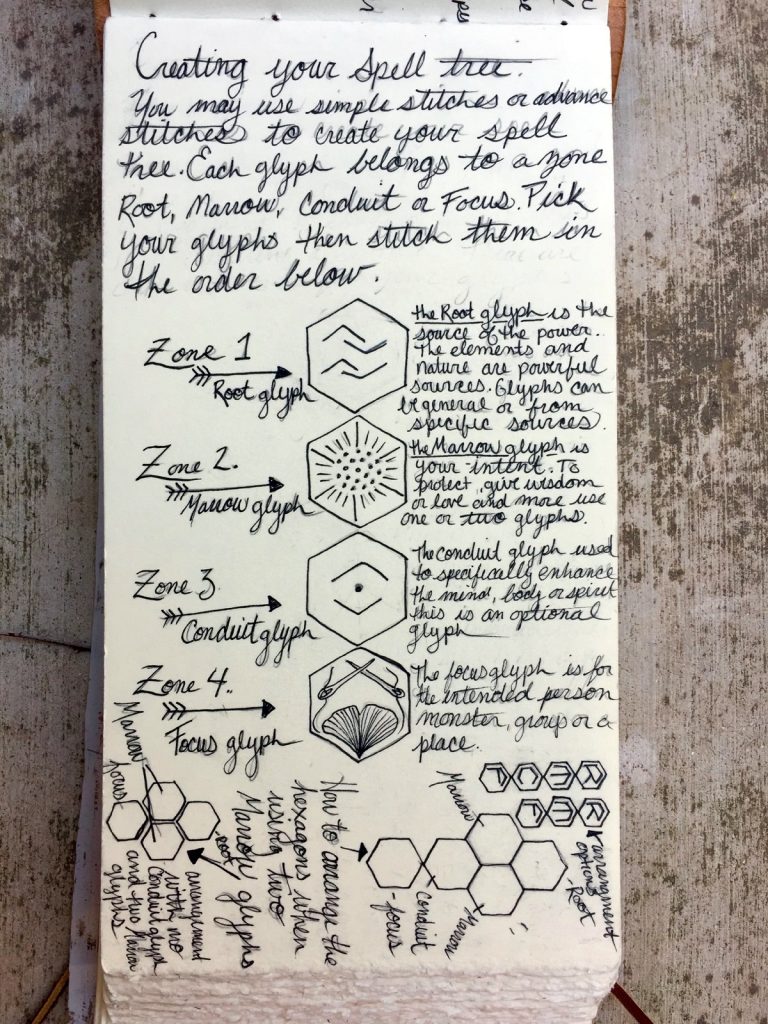 Creating your Spell tree.
You may use simple stitches or advance
stitches to create your spell
tree. Each glyph belongs to a zone
Root, Marrow, Conduit or Focus. Pick
your glyphs then stitch them in
the order below.
Zone 1
Root glyph
the Root glyph is the
source of the power.
The elements and
nature are powerful
sources. Glyphs can
be general or from
specific sources.
Zone 2.
Marrow glyph
the Marrow glyph is
your intent. To
protect, give wisdom
or love and more use
one or two glyphs.
Zone 3
Conduit glyph
The conduit glyph used
to specifically enhance
the mind, body or spirit
this is an optional
glyph
Zone 4..
Focus glyph
The focus glyph is for
the intended person
monster, group or a
place.
Marrow
focus
Root
arrangement
with no
Conduit glyph
and two Marrow
glyphs
How to arrange the
hexagons when
using two
Marrow glyphs
Marrow
Marrow
conduit
-focus
F C M R
F M R
arrangement
options
-Root